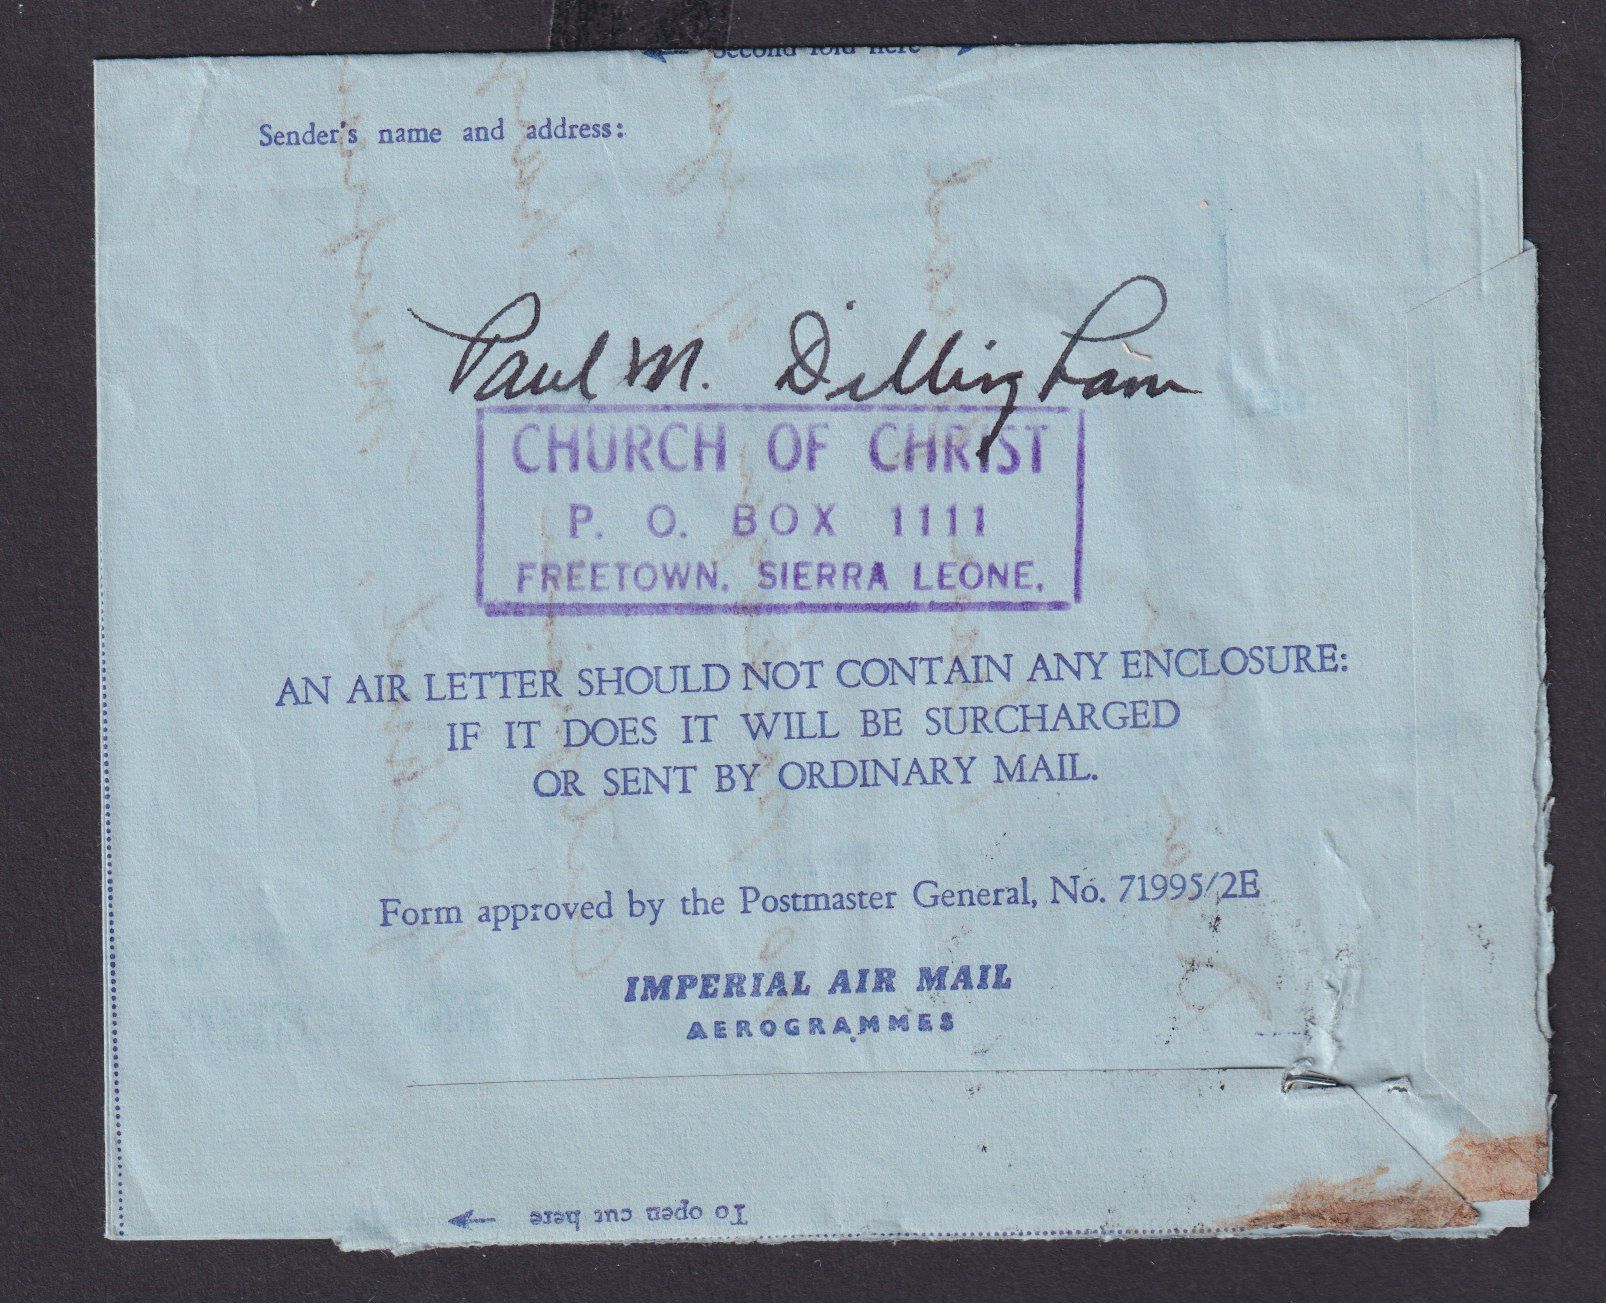 Second fold here
Sender's name and address:
Paul M. Dillingham
CHURCH OF CHRIST
P. O. BOX 1111
FREETOWN. SIERRA LEONE.
AN AIR LETTER SHOULD NOT CONTAIN ANY ENCLOSURE:
IF IT DOES IT WILL BE SURCHARGED
OR SENT BY ORDINARY MAIL.
Form approved by the Postmaster General, No. 71995/2E
IMPERIAL AIR MAIL
AEROGRAMMES
To open cut here